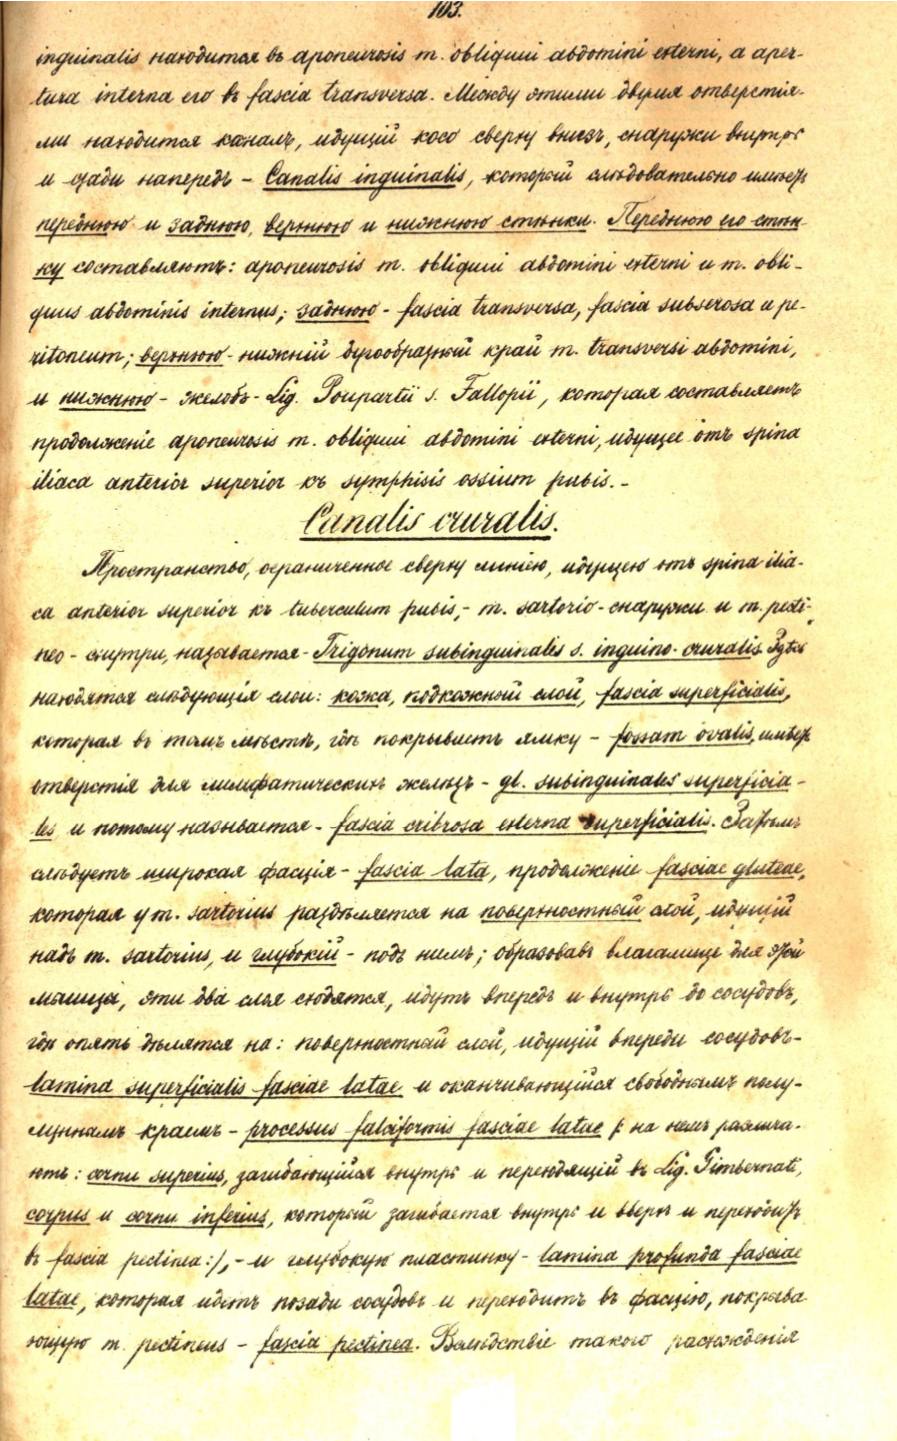 103.
inguinalis находится въ aponeurosis m. obliquii abdomini externi, а aper-
tura interna его въ fascia transversa. Между этими двумя отверстія-
ми находится каналъ, идущій косо сверху внизъ, снаружи внутрь
и сзади напередъ - Canalis inguinalis, который слѣдовательно имѣетъ
переднюю и заднюю, верхнюю и нижнюю стѣнки. Переднюю его стѣн-
ку составляютъ: aponeurosis m. obliquii abdomini externi и m. obli-
quus abdominis internus; заднюю - fascia transversa, fascia subserosa и pe-
ritoneum; верхнюю - нижній дугообразный край m. transversi abdomini,
и нижнюю - желобъ - Lig. Poupartii s. Fallopii, которая составляетъ
продолженіе aponeurosis m. obliquii abdomini externi, идущее отъ spina
iliaca anterior superior къ symphisis ossium pubis. -
Canalis cruralis.
Пространство, ограниченное сверху линіею, идущею отъ spina ilia-
ca anterior superior къ tuberculum pubis, - m. sartorio - снаружи и m. pecti-
neo - снутри, называется - Trigonum subinguinalis s. inguino-cruralis. Здѣсь
находятся слѣдующія слои: кожа, подкожный слой, fascia superficialis,
которая въ томъ мѣстѣ, гдѣ покрываетъ ямку - fossam ovalis, имѣетъ
отверстія для лимфатическихъ железъ - gl. subinguinales superficia-
les и потому называется - fascia cribrosa externa superficialis. Затѣмъ
слѣдуетъ широкая фасція - fascia lata, продолженіе fasciae gluteae,
которая у m. sartorius раздѣляется на поверхностный слой, идущій
надъ m. sartorius, и глубокій - подъ нимъ; образовавъ влагалище для этой
мышцы, эти два слоя сходятся, идутъ впередъ и внутрь до сосудовъ,
гдѣ опять дѣлятся на: поверхностный слой, идущій впереди сосудовъ -
lamina superficialis fasciae latae и оканчивающійся свободнымъ полу-
луннымъ краемъ - processus falciformis fasciae latae /: на немъ различа-
ютъ: cornu superius, загибающійся внутрь и переходящій въ Lig. Gimbernati,
corpus и cornu inferius, который загибается внутрь и вверхъ и переходитъ
въ fascia pectinea :/, - и глубокую пластинку - lamina profunda fasciae
latae, которая идетъ позади сосудовъ и переходитъ въ фасцію, покрыва
ющую m. pectineus - fascia pectinea. Вслѣдствіе такого расхожденія